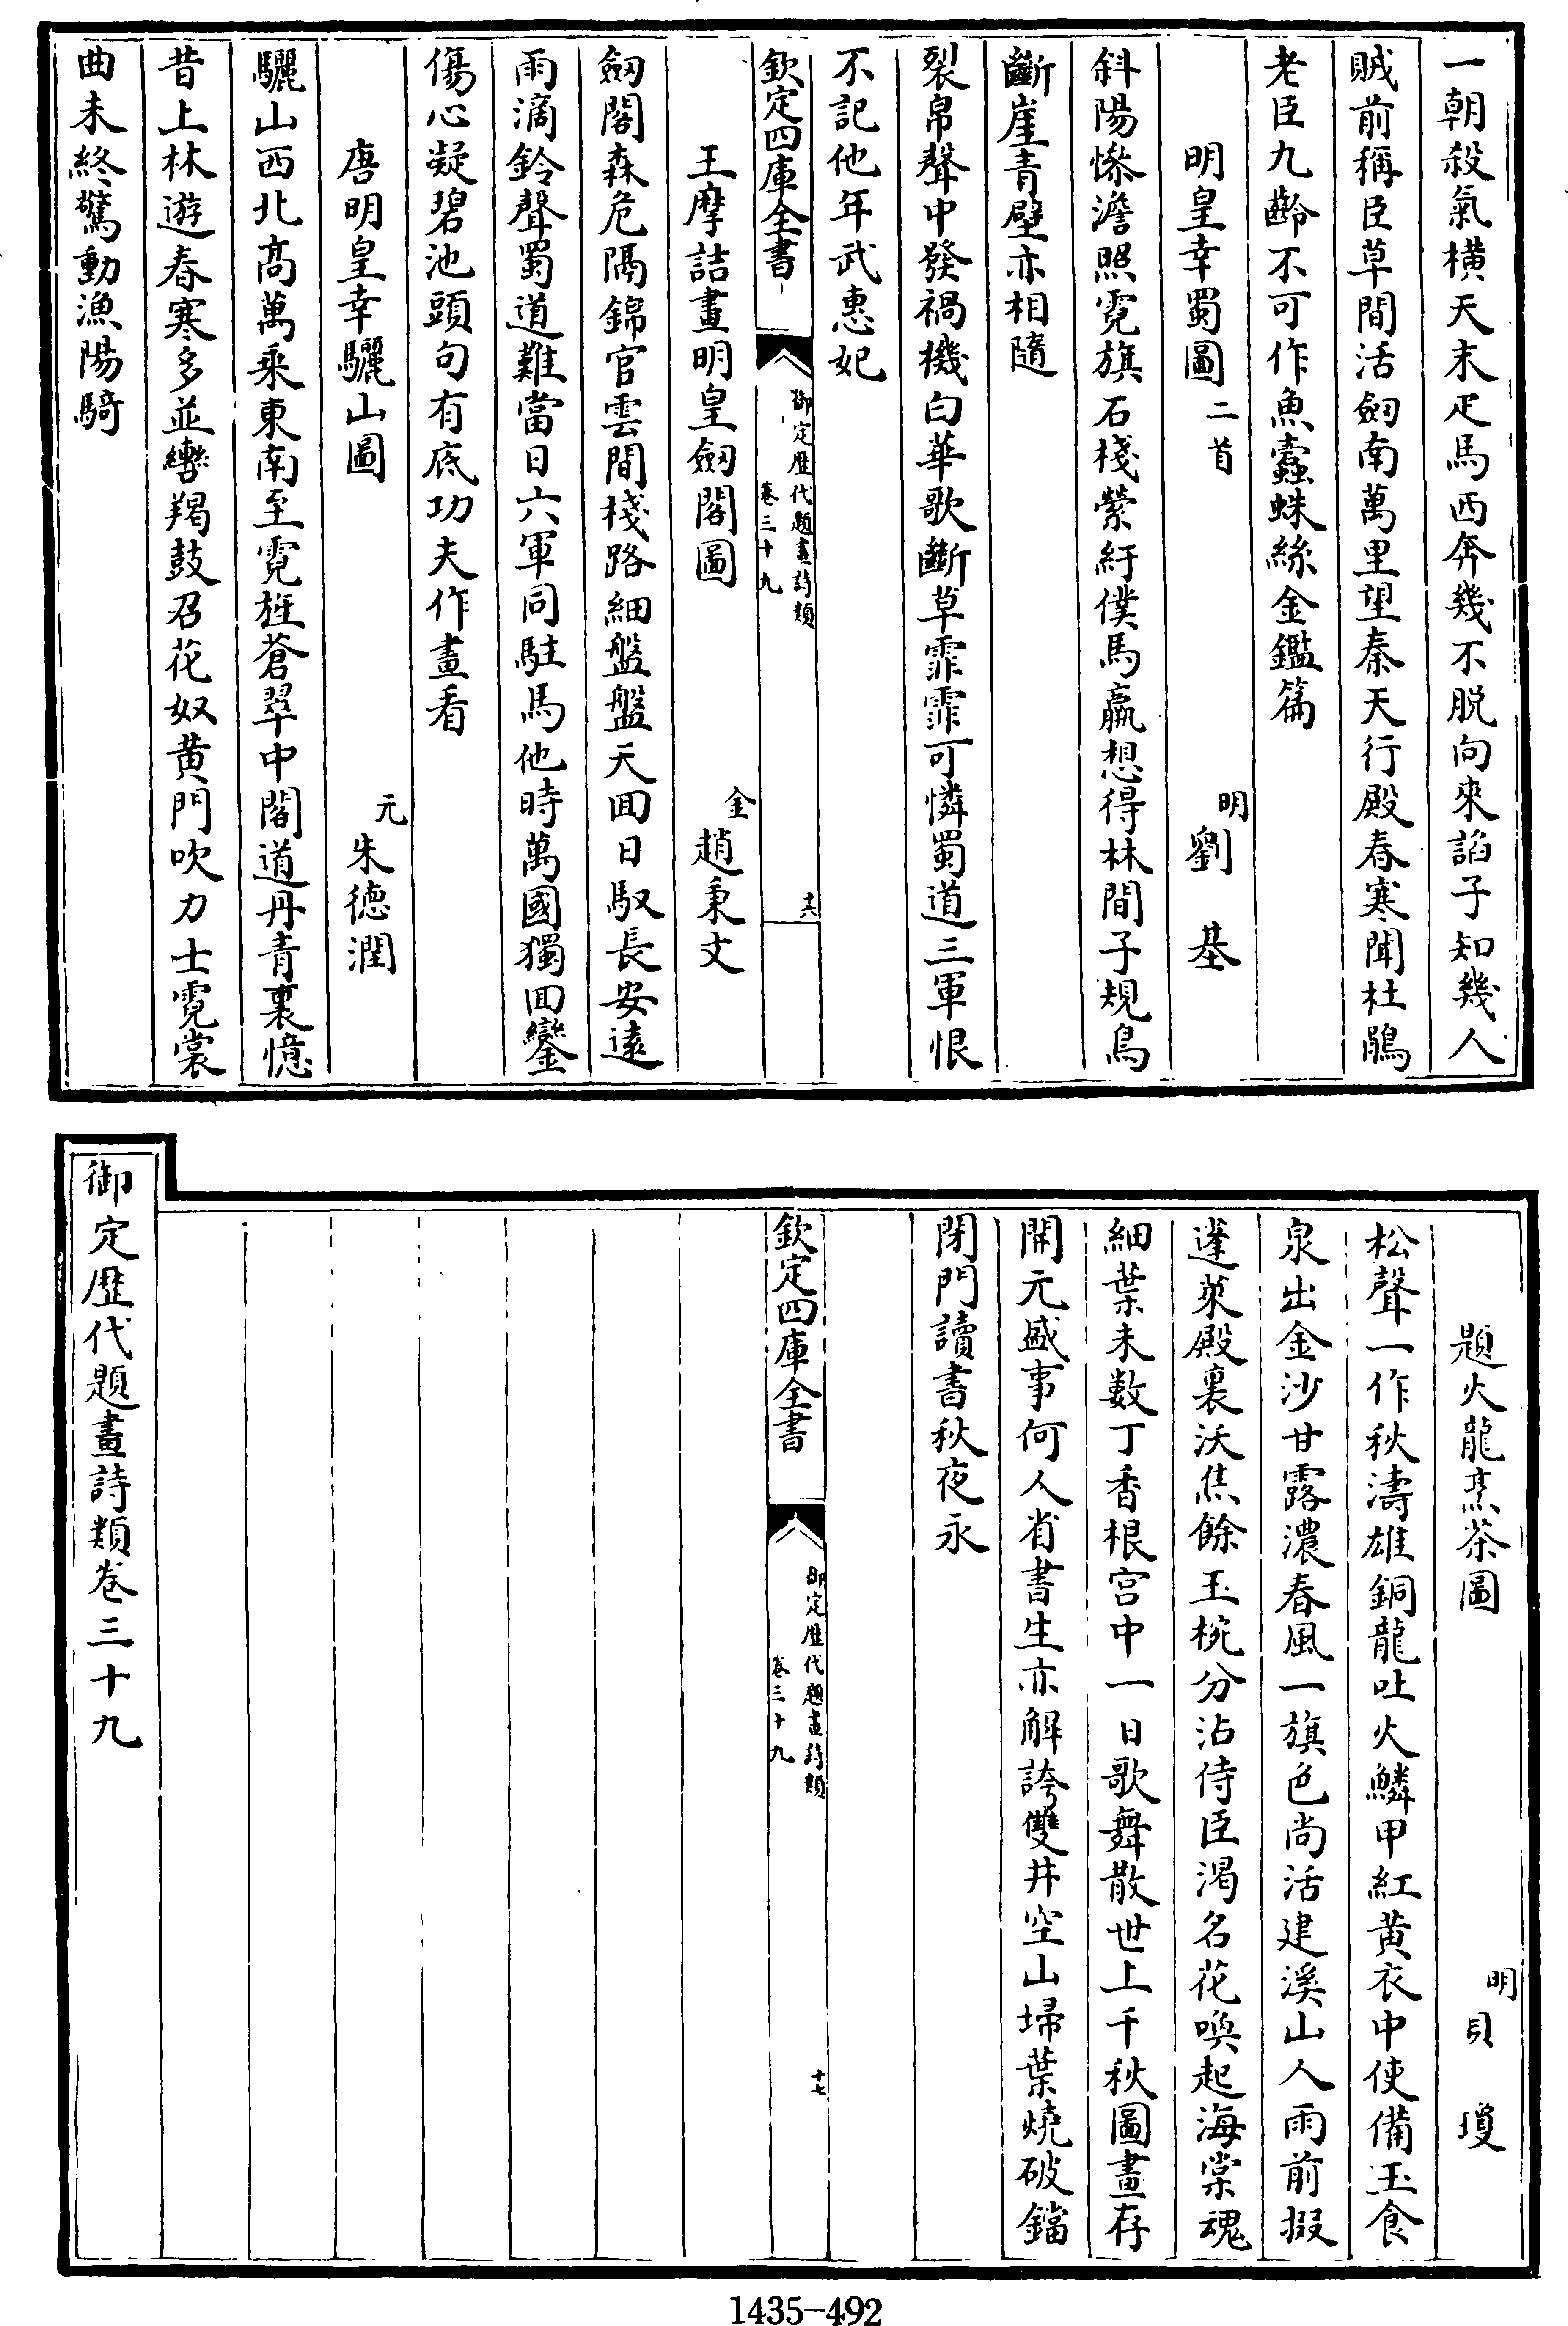 一朝殺氣横天末疋馬西奔幾不脱向來諂子知幾人
賊前稱臣草間活劒南萬里望秦天行殿春寒聞杜鵑
老臣九齡不可作魚蠹蛛絲金鑑篇
明皇幸蜀圖二首
明劉基
斜陽慘澹照霓旗石棧縈紆僕馬羸想得林間子規鳥
斷崖青壁亦相隨
裂帛聲中發禍機白華歌斷草霏霏可憐蜀道三軍恨
不記他年武惠妃
欽定四庫全書
御定歴代題畫詩類
卷三十九
十六
王摩詰畫明皇劒閣圖
金趙秉文
劒閣森危隔錦官雲間棧路細盤盤天回日馭長安遠
雨滴鈴聲蜀道難當日六軍同駐馬他時萬國獨回鑾
傷心凝碧池頭句有底功夫作畫看
唐明皇幸驪山圖
元朱德潤
驪山西北高萬乘東南至霓旌蒼翠中閣道丹青裏憶
昔上林遊春寒多並轡羯鼓召花奴黄門吹力士霓裳
曲未終驚動漁陽騎
題火龍烹茶圖
明貝瓊
松聲一作秋濤雄銅龍吐火鱗甲紅黄衣中使備玉食
泉出金沙甘露濃春風一旗色尚活建溪山人雨前掇
蓬萊殿裏沃焦餘玉椀分沾侍臣渇名花喚起海棠魂
細葉未數丁香根宫中一日歌舞散世上千秋圖畫存
開元盛事何人省書生亦解誇雙井空山埽葉燒破鐺
閉門讀書秋夜永
欽定四庫全書
御定歴代題畫詩類
卷三十九
十七
御定歴代題畫詩類卷三十九
1435-492